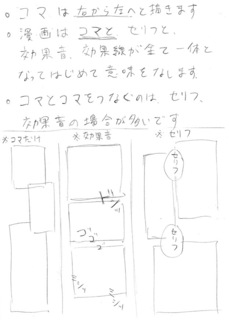 ○ コマは右から左へと描きます
○ 漫画はコマとセリフと、
効果音、効果線が全て一体と
なってはじめて意味をなします。
○ コマとコマをつなぐのは、セリフ、
効果音の場合が多いです
※コマだけ
※効果音
※セリフ
ドドッ
ゴゴゴ
セリフ
セリフ